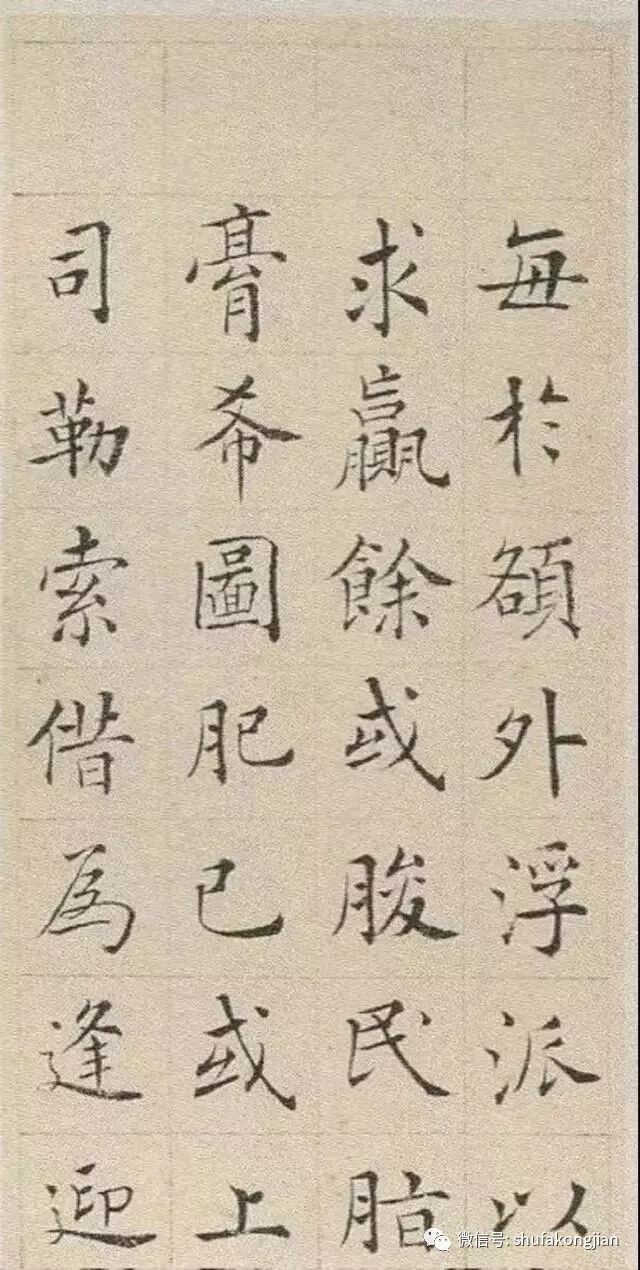 每於額外浮派以
求贏餘或朘民脂
膏希圖肥己或上
司勒索借為逢迎
微信号: shufakongjian